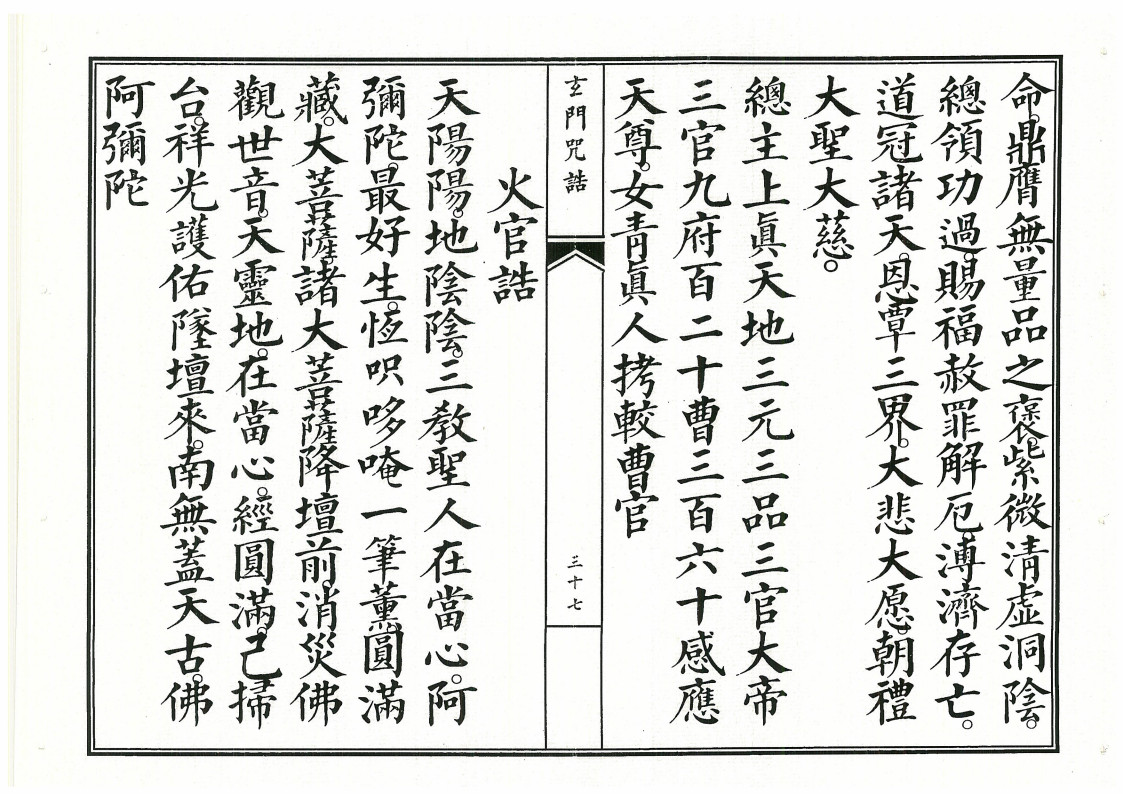 命。鼎膺無量品之褒。紫微清虛洞陰。
總領功過。賜福赦罪解厄。溥濟存亡。
道冠諸天。恩覃三界。大悲大愿。朝禮
大聖大慈。
總主上眞天地三元三品三官大帝
三官九府百二十曹三百六十感應
天尊。女青眞人拷較曹官
玄門咒誥
三十七
火官誥
天陽陽。地陰陰。三教聖人在當心。阿
彌陀。最好生。恆呮哆唵一筆薰。圓滿
藏。大菩薩。諸大菩薩降壇前。消災佛
觀世音。天靈地。在當心。經圓滿。己掃
台。祥光護佑墜壇來。南無蓋天古。佛
阿彌陀